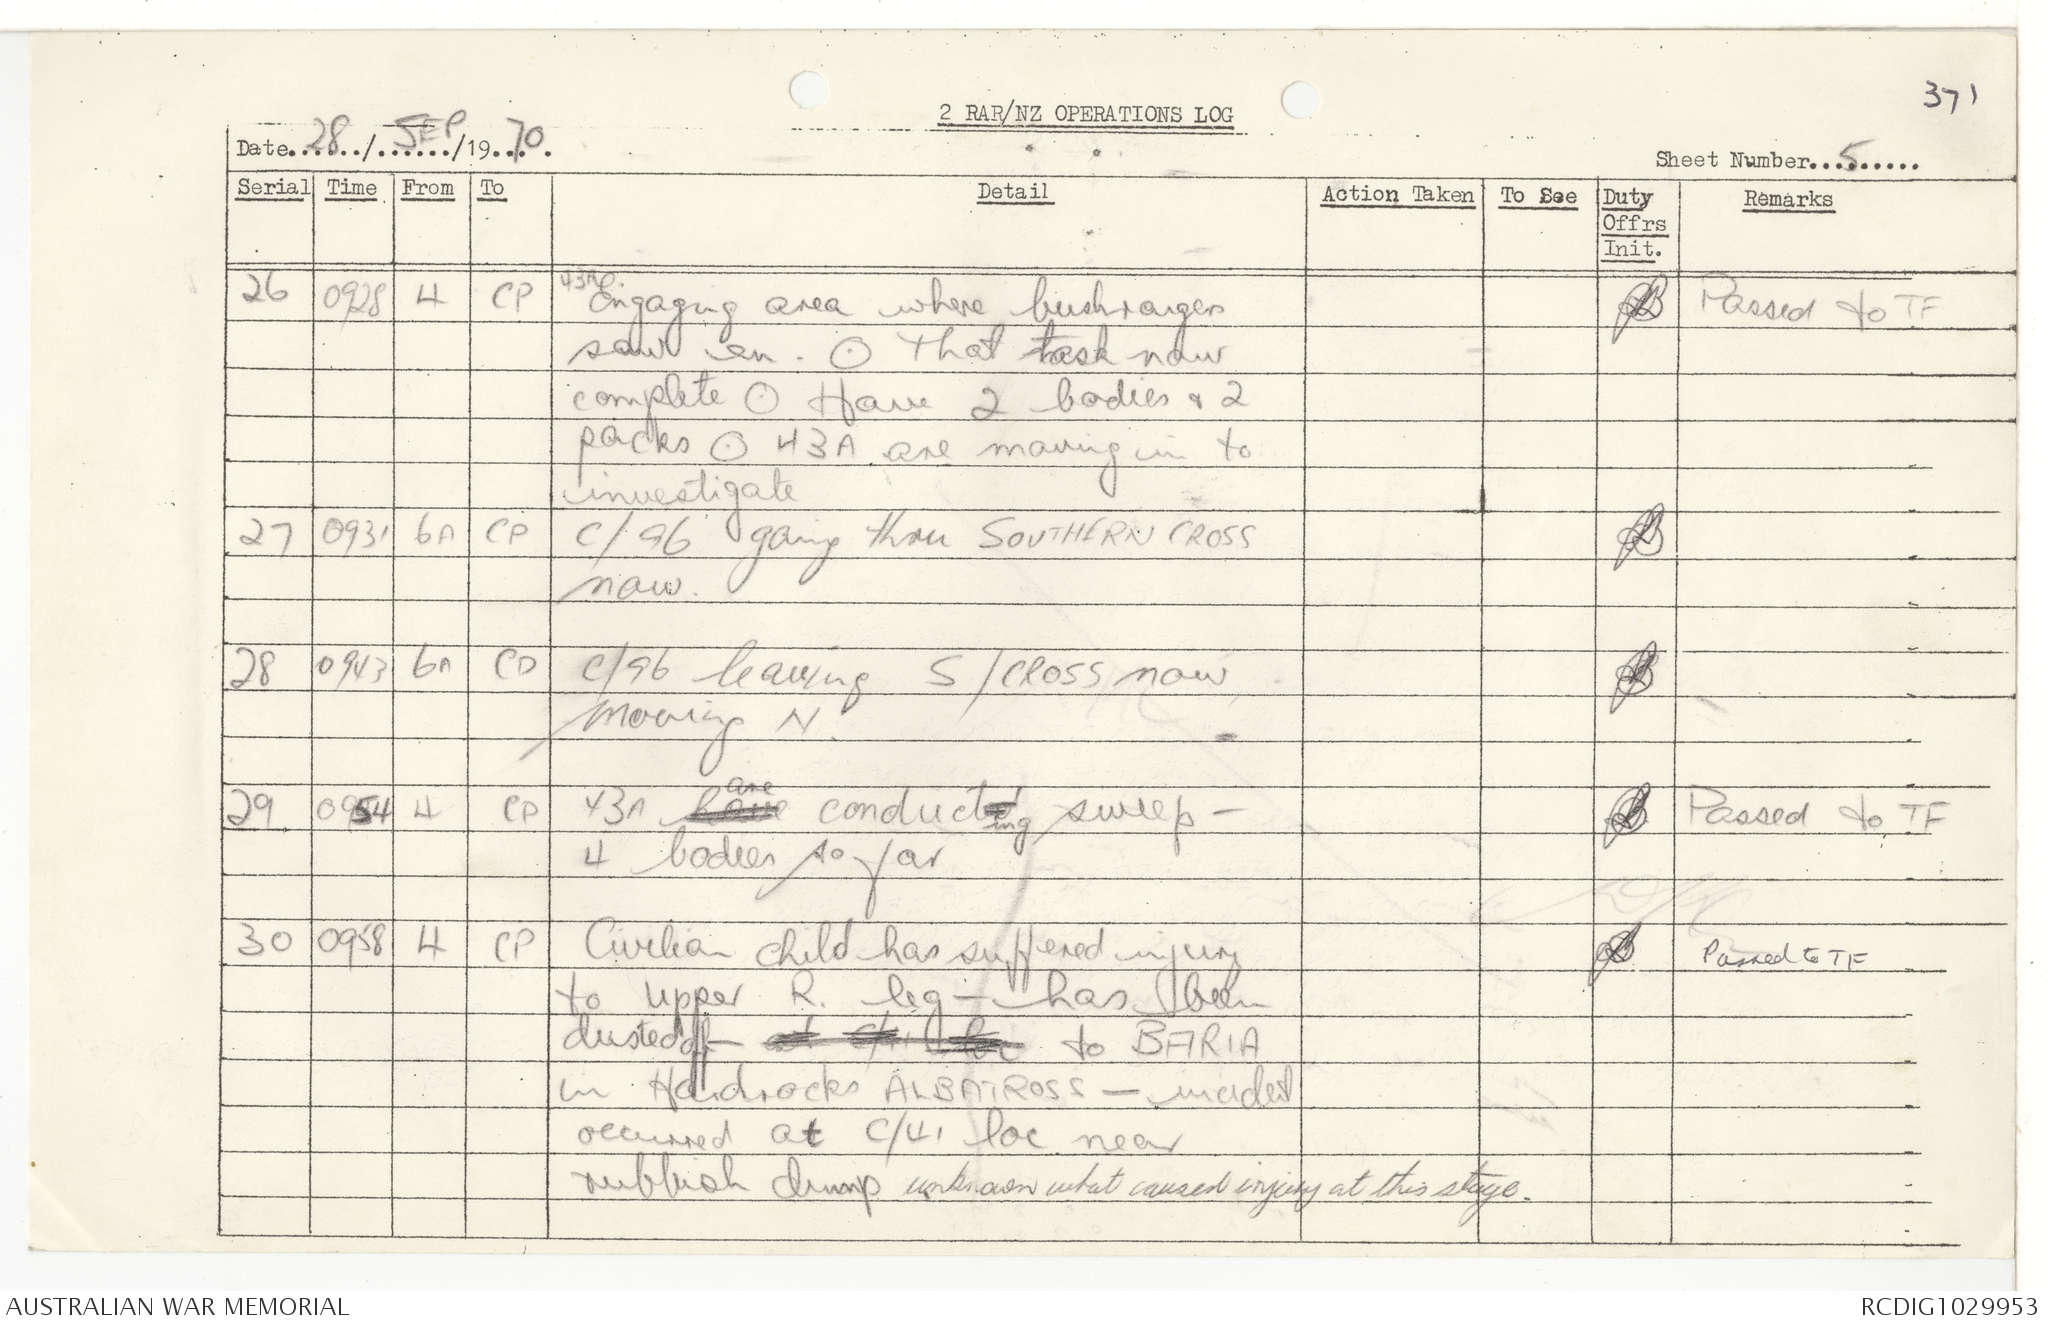 371
2 RAR/NZ OPERATIONS LOG
Date 28/SEP/1970.
Sheet Number 5
Serial Time From To Detail Action Taken To See Duty Offrs Init. Remarks
26 0928 4 CP 43A Engaging area where bushrangers Passed to TF
saw en. ⊙ That task now
complete ⊙ Have 2 bodies & 2
packs ⊙ 43A are moving in to
investigate
27 0931 6A CP C/96 going thru SOUTHERN CROSS
now.
28 0943 6A CP C/96 leaving S/CROSS now
moving N.
29 0954 4 CP 43A are conducting sweep - Passed to TF
4 bodies so far
30 0958 4 CP Civilian child has suffered injury Passed to TF
to upper R. leg - has been
dustedoff - to BARIA
in Hardrocks ALBATROSS - incident
occurred at C/41 loc near
rubbish dump unknown what caused injury at this stage.
AUSTRALIAN WAR MEMORIAL
RCDIG1029953